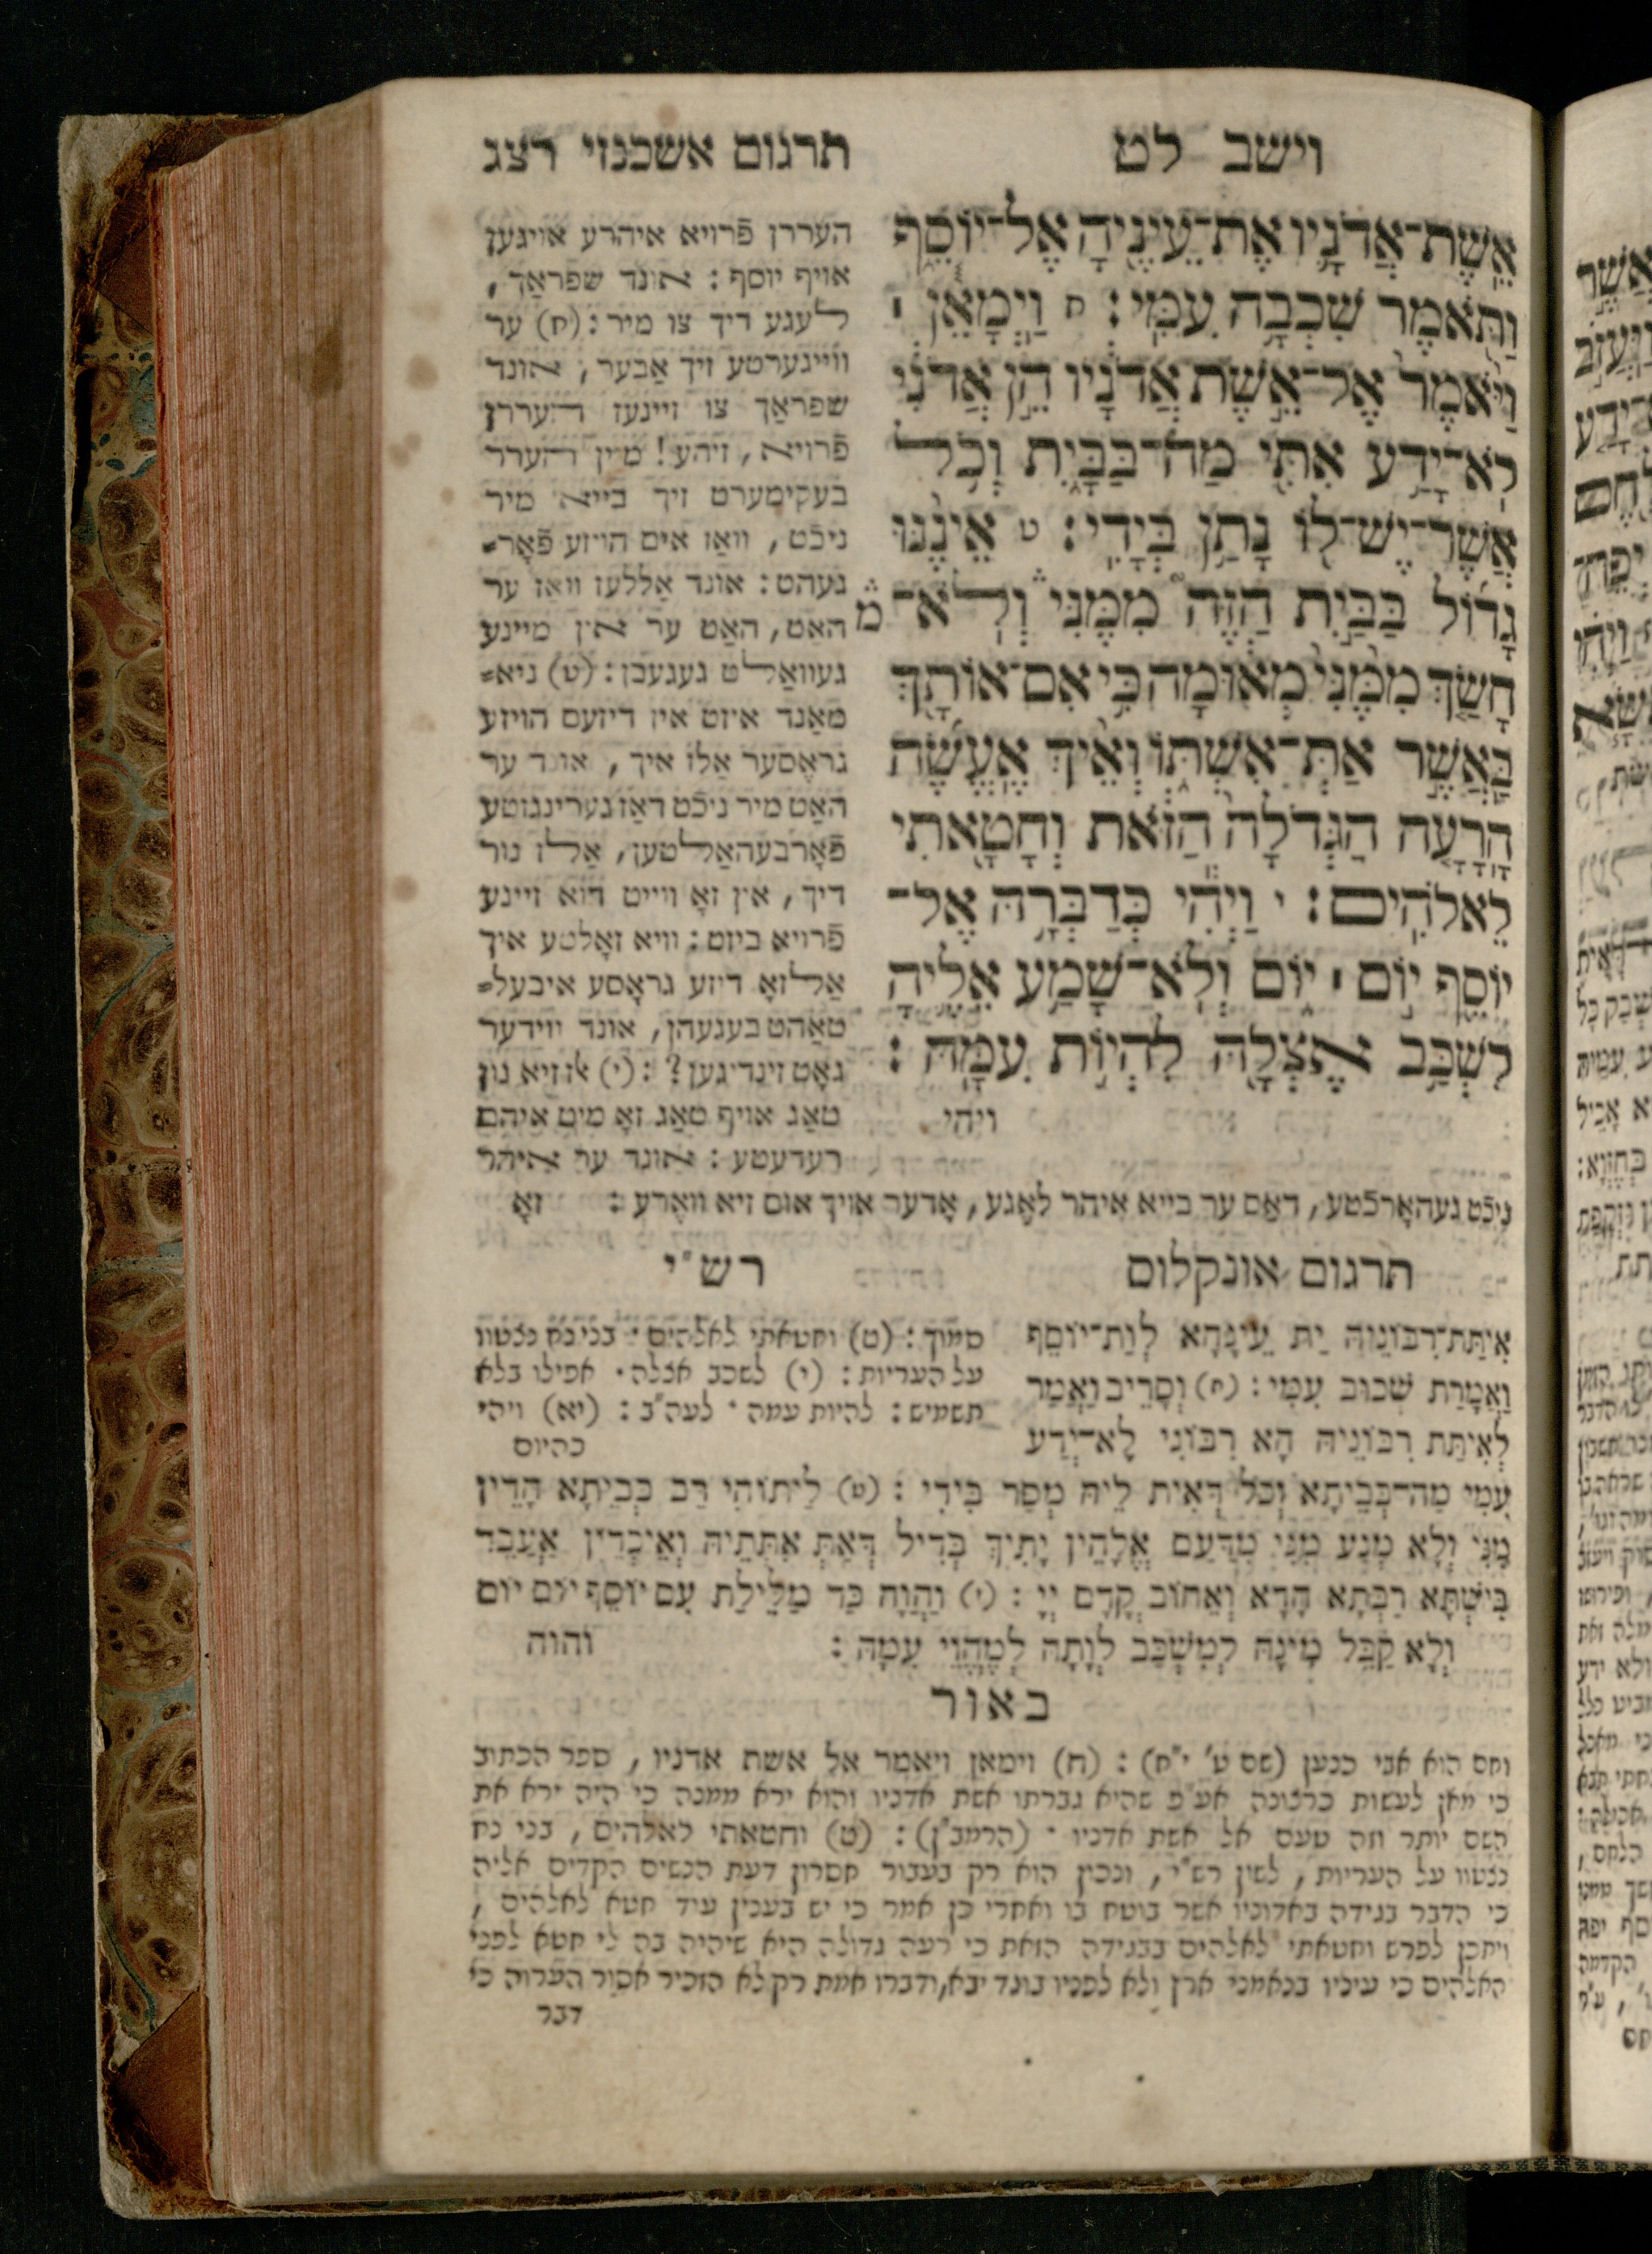 וישב לט
תרגום אשכנזי רצג
אֵֽשֶׁת־אֲדֹנָ֛יו אֶת־עֵינֶ֖יהָ אֶל־יוֹסֵ֑ף
וַתֹּ֖אמֶר שִׁכְבָ֥ה עִמִּֽי׃ ח וַיְמָאֵ֓ן ׀
וַיֹּ֙אמֶר֙ אֶל־אֵ֣שֶׁת אֲדֹנָ֔יו הֵ֣ן אֲדֹנִ֔י
לֹא־יָדַ֥ע אִתִּ֖י מַה־בַּבָּ֑יִת וְכֹ֥ל
אֲשֶׁר־יֶשׁ־ל֖וֹ נָתַ֥ן בְּיָדִֽי׃ ט אֵינֶ֨נּוּ
גָד֜וֹל בַּבַּ֣יִת הַזֶּה֮ מִמֶּנִּי֒ וְלֹֽא־
חָשַׂ֤ךְ מִמֶּ֙נִּי֙ מְא֔וּמָה כִּ֥י אִם־אוֹתָ֖ךְ
בַּאֲשֶׁ֣ר אַתְּ־אִשְׁתּ֑וֹ וְאֵ֨יךְ אֶֽעֱשֶׂ֜ה
הָרָעָ֤ה הַגְּדֹלָה֙ הַזֹּ֔את וְחָטָ֖אתִי
לֵֽאלֹהִֽים׃ י וַיְהִ֕י כְּדַבְּרָ֥הּ אֶל־
יוֹסֵ֖ף י֣וֹם ׀ י֑וֹם וְלֹא־שָׁמַ֥ע אֵלֶ֛יהָ
לִשְׁכַּ֥ב אֶצְלָ֖הּ לִהְי֥וֹת עִמָּֽהּ׃
ויהי
העררן פֿרויא איהרע אויגען
אויף יוסף: אונד שפראַך,
לעגע דיך צו מיר: (ח) ער
ווייגערטע זיך אַבער, אונד
שפראַך צו זיינעז העררן
פֿרויא, זיהע! מיין הערר
בעקימערט זיך בייא מיר
ניכֿט, וואַז אים הויזע פֿאָר=
געהט: אונד אַללעז וואַז ער
האַט, האַט ער אין מיינע
געוואַלט געגעבן: (ט) ניא=
מאַנד איזט אין דיזעם הויזע
גראָסער אַלז איך, אונד ער
האַט מיר ניכֿט דאַז גערינגזטע
פֿאָרבעהאַלטען, אַלז נור
דיך, אין זאָ ווייט דוא זיינע
פֿרויא ביזט: וויא זאָלטע איך
אַלזאָ דיזע גראָסע איבעל=
טאַהט בעגעהן, אונד ווידער
גאָט זינדיגען?: (י) אז זיא נון
טאַג אויף טאַג זאָ מיט איהם
רעדעטע: אונד ער איהר
ניכֿט געהאָרכֿטע, דאַס ער בייא איהר לאָגע, אָדער אויך אום זיא וואָרע: זאָ
תרגום אונקלוס
אִתַּת־רִבּוֹנֵיהּ יַת עֵינָהָא לְוַת־יוֹסֵף
וַאֲמָרַת שְׁכוּב עִמִּי: (ח) וְסָרֵיב וַאֲמַר
לְאִתַּת רִבּוֹנֵיהּ הָא רִבּוֹנִי לָא־יְדַע
עִמִּי מַה־בְּבֵיתָא וְכֹל דְּאִית לֵיהּ מְסַר בִּידִי: (ט) לֵיתוֹהִי רַב בְּבֵיתָא הָדֵין
מִנִּי וְלָא מְנַע מִנִּי מִדַּעַם אֱלָהֵין יָתִיךְ בְּדִיל דְּאַתְּ אִתְּתֵיהּ וְאֵיכְדֵין אַעְבֵּד
בִּישְׁתָּא רַבְּתָא הָדָא וְאֵחוֹב קֳדָם יְיָ: (י) וַהֲוָה כַּד מַלֵּילַת עִם יוֹסֵף יוֹם יוֹם
וְלָא קַבֵּל מִינָהּ לְמִשְׁכַּב לְוָתָהּ לְמֶהֱוֵי עִמָּהּ: והוה
רש"י
סמוך: (ט) וחטאתי לאלהים· בני נח נצטוו
על העריות: (י) לשכב אצלה· אפילו בלא
תשמיש: להיות עמה· לעה"ב: (יא) ויהי
כהיום
באור
וחם הוא אבי כנען (שם ט' י"ח): (ח) וימאן ויאמר אל אשת אדניו, ספר הכתוב
כי מאן לעשות כרצונה אע"פ שהיא גברתו אשת אדניו והוא ירא ממנה כי היה ירא את
השם יותר וזה טעם אל אשת אדניו· (הרמב"ן): (ט) וחטאתי לאלהים, בני נח
נצטוו על העריות, לשון רש"י, ונכון הוא רק בעבור חסרון דעת הנשים הקדים אליה
כי הדבר בגידה באדוניו אשר בוטח בו ואחרי כן אמר כי יש בענין עוד חטא לאלהים,
ויתכן לפרש וחטאתי לאלהים בבגידה הזאת כי רעה גדולה היא שיהיה בה לי חטא לפני
האלהים כי עיניו בנאמני ארץ ולא לפניו בוגד יבא, ודברו אמת רק לא הזכיר אסור הערוה כי
דבר